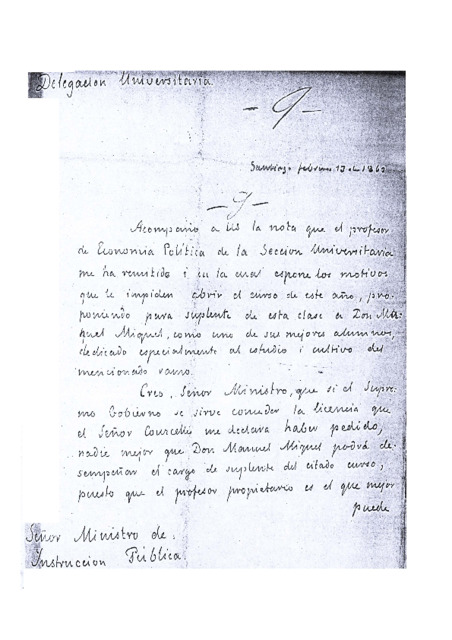 Delegacion Universitaria
- 9 -
Santiago febrero 13 de 1860
- 9 -
Acompaño a US la nota que el profesor
de Economia Politica de la Seccion Universitaria
me ha remitido i en la cual espone los motivos
que le impiden abrir el curso de este año, pro-
poniendo para suplente de esta clase a Don Ma-
nuel Miquel, como uno de sus mejores alumnos,
dedicado especialmente al estudio i cultivo del
mencionado ramo.
Creo, Señor Ministro, que si el Supre-
mo Gobierno se sirve conceder la licencia que
el Señor Courcelle me declara haber pedido,
nadie mejor que Don Manuel Miquel podrá de-
sempeñar el cargo de suplente del citado curso,
puesto que el profesor propietario es el que mejor
puede
Señor Ministro de
Instruccion Pública